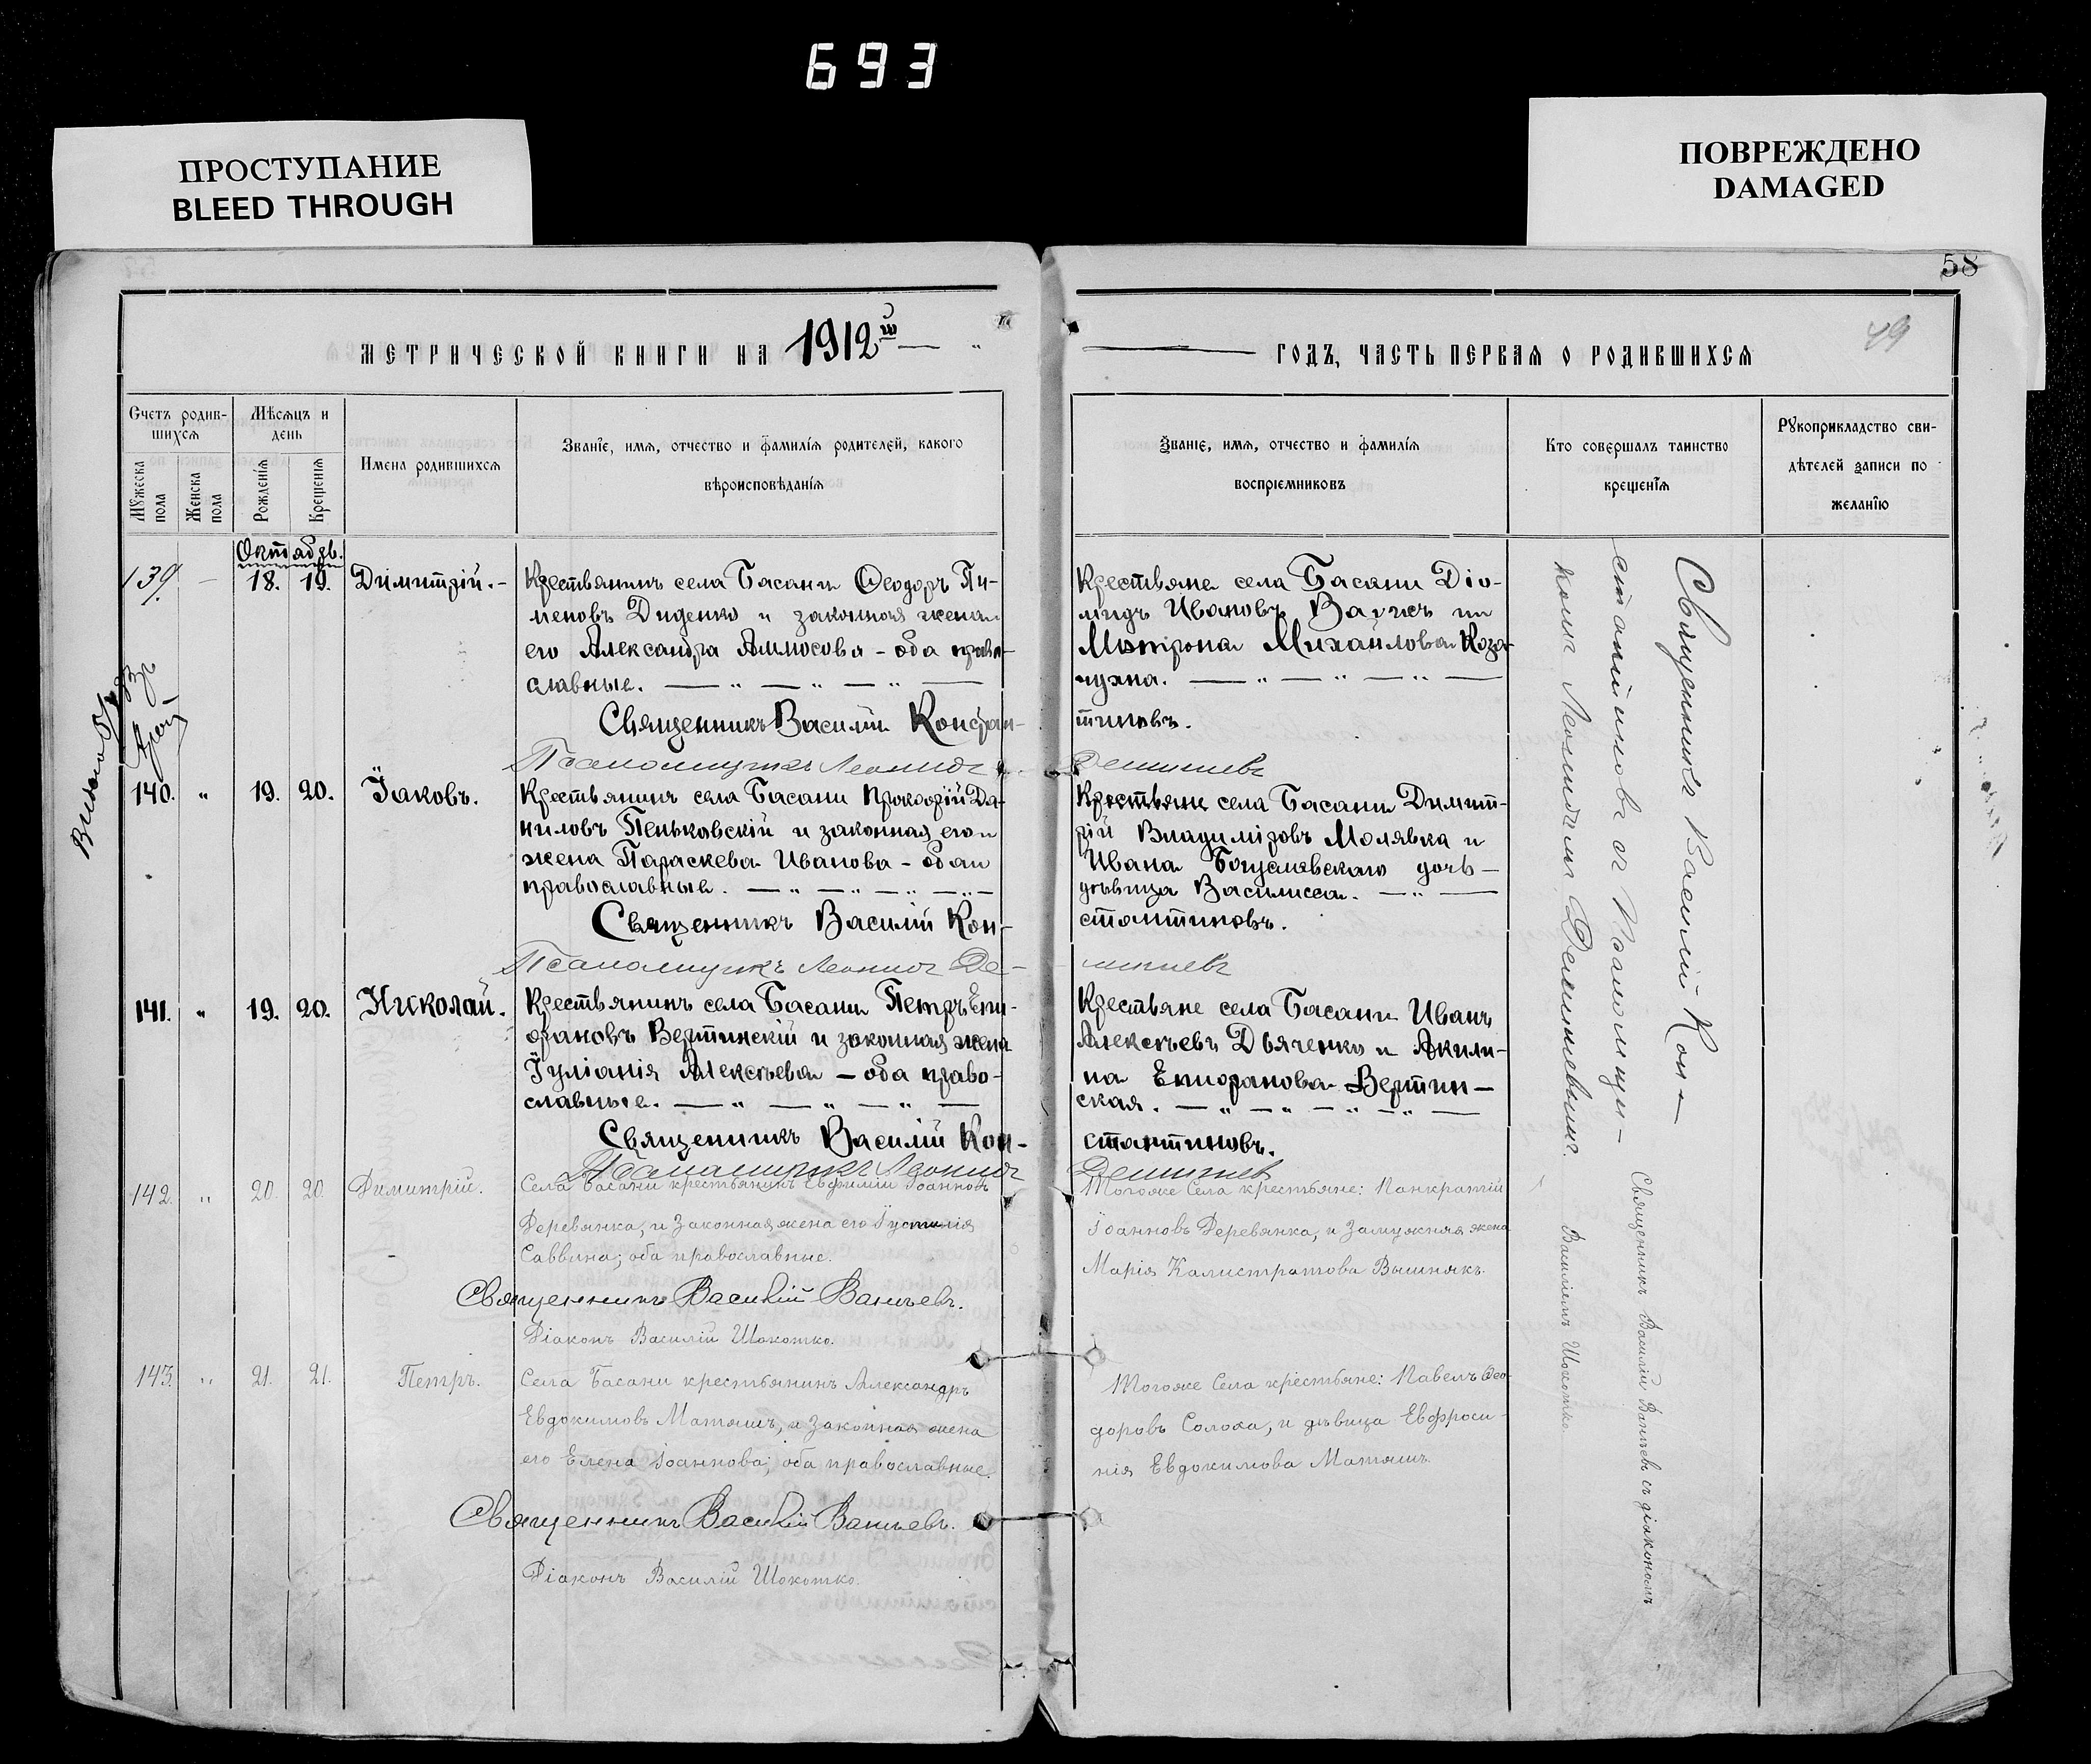 693
ПРОСТУПАНИЕ
BLEED THROUGH
ПОВРЕЖДЕНО
DAMAGED
58
49
МЕТРИЧЕСКОЙ КНИГИ НА 1912й
ГОДЪ, ЧАСТЬ ПЕРВАЯ О РОДИВШИХСЯ
Счетъ родив-
шихся
Мужеска
пола
Женска
пола
Мѣсяцъ и
день
Рожденія
Крещенія
Имена родившихся
Званіе, имя, отчество и фамилія родителей, какого
вѣроисповѣданія
Званіе, имя, отчество и фамилія
воспріемниковъ
Кто совершалъ таинство
крещенія
Рукоприкладство сви-
дѣтелей записи по
желанію
Октябрь.
139. — 18. 19. Димитрій. -
Крестьянинъ села Басани Ѳеодоръ Пи-
меновъ Диденко и законная жена
его Александра Аммосова - оба право-
славные.
Священникъ Василій Констан-
Псаломщикъ Леонидъ
Крестьяне села Басани Діо-
мидъ Ивановъ
Матрона Михайлова Коза-
чухна.
тиновъ.
140. " 19. 20. Іаковъ.
Крестьянинъ села Басани Прокофій Да-
ниловъ Пеньковскій и законная его
жена Параскева Иванова - оба
православные.
Священникъ Василій Кон-
Псаломщикъ Леонидъ
Крестьяне села Басани Димит-
рій Владиміровъ Молявка и
Ивана Богуславскаго дочь -
дѣвица Василисса.
стантиновъ.
141. " 19. 20. Николай.
Крестьянинъ села Басани Петръ Епи-
фановъ Вертинскій и законная жена
Іуліанія Алексѣева - оба право-
славные.
Священникъ Василій Кон-
Псаломщикъ Леонидъ
Крестьяне села Басани Иванъ
Алексѣевъ Дяченко и Акили-
на Епифанова Вертин-
ская.
стантиновъ.
142. " 20. 20. Димитрій.
Села Басани крестьянинъ Евфимій Іоанновъ
Деревянка, и законная жена его Іустинія
Саввина; оба православные.
Священникъ Василій Ваньевъ.
Діаконъ Василій Шокотко.
Тогоже Села крестьяне: Панкратій
Іоанновъ Деревянка, и замужняя жена
Марія Калистратова Вишнякъ.
143. " 21. 21. Петръ.
Села Басани крестьянинъ Александръ
Евдокимовъ Матяшъ, и законная жена
его Елена Іоаннова; оба православные.
Священникъ Василій Ваньевъ.
Діаконъ Василій Шокотко.
Тогоже Села крестьяне: Павелъ Ѳео-
доровъ Солоха, и дѣвица Евфроси-
нія Евдокимова Матяшъ.
Священникъ Василій Кон-
стантиновъ съ Псаломщи-
комъ Леонидомъ
Священникъ Василій Ваньевъ съ діакономъ
Василіемъ Шокотко.